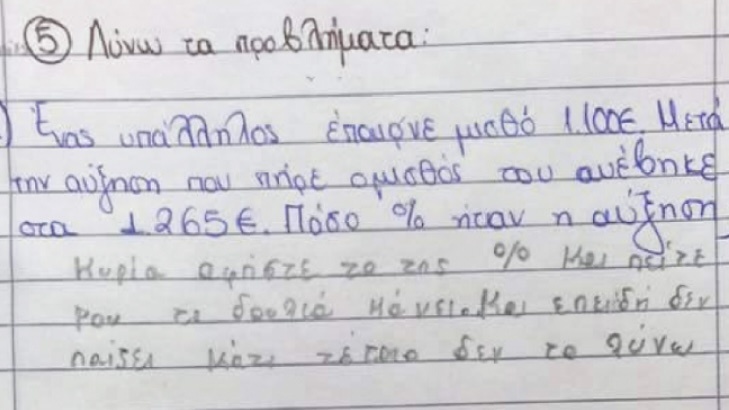 ⑤ Λύνω τα προβλήματα:
Ένας υπάλληλος έπαιρνε μισθό 1.100€. Μετά
την αύξηση που πήρε ο μισθός του ανέβηκε
στα 1.265€. Πόσο % ήταν η αύξηση
Κυρία αφήστε το της % και πείτε
μου τι δουλιά κάνει. Και επειδή δεν
παίζει κάτι τέτοιο δεν το λύνω